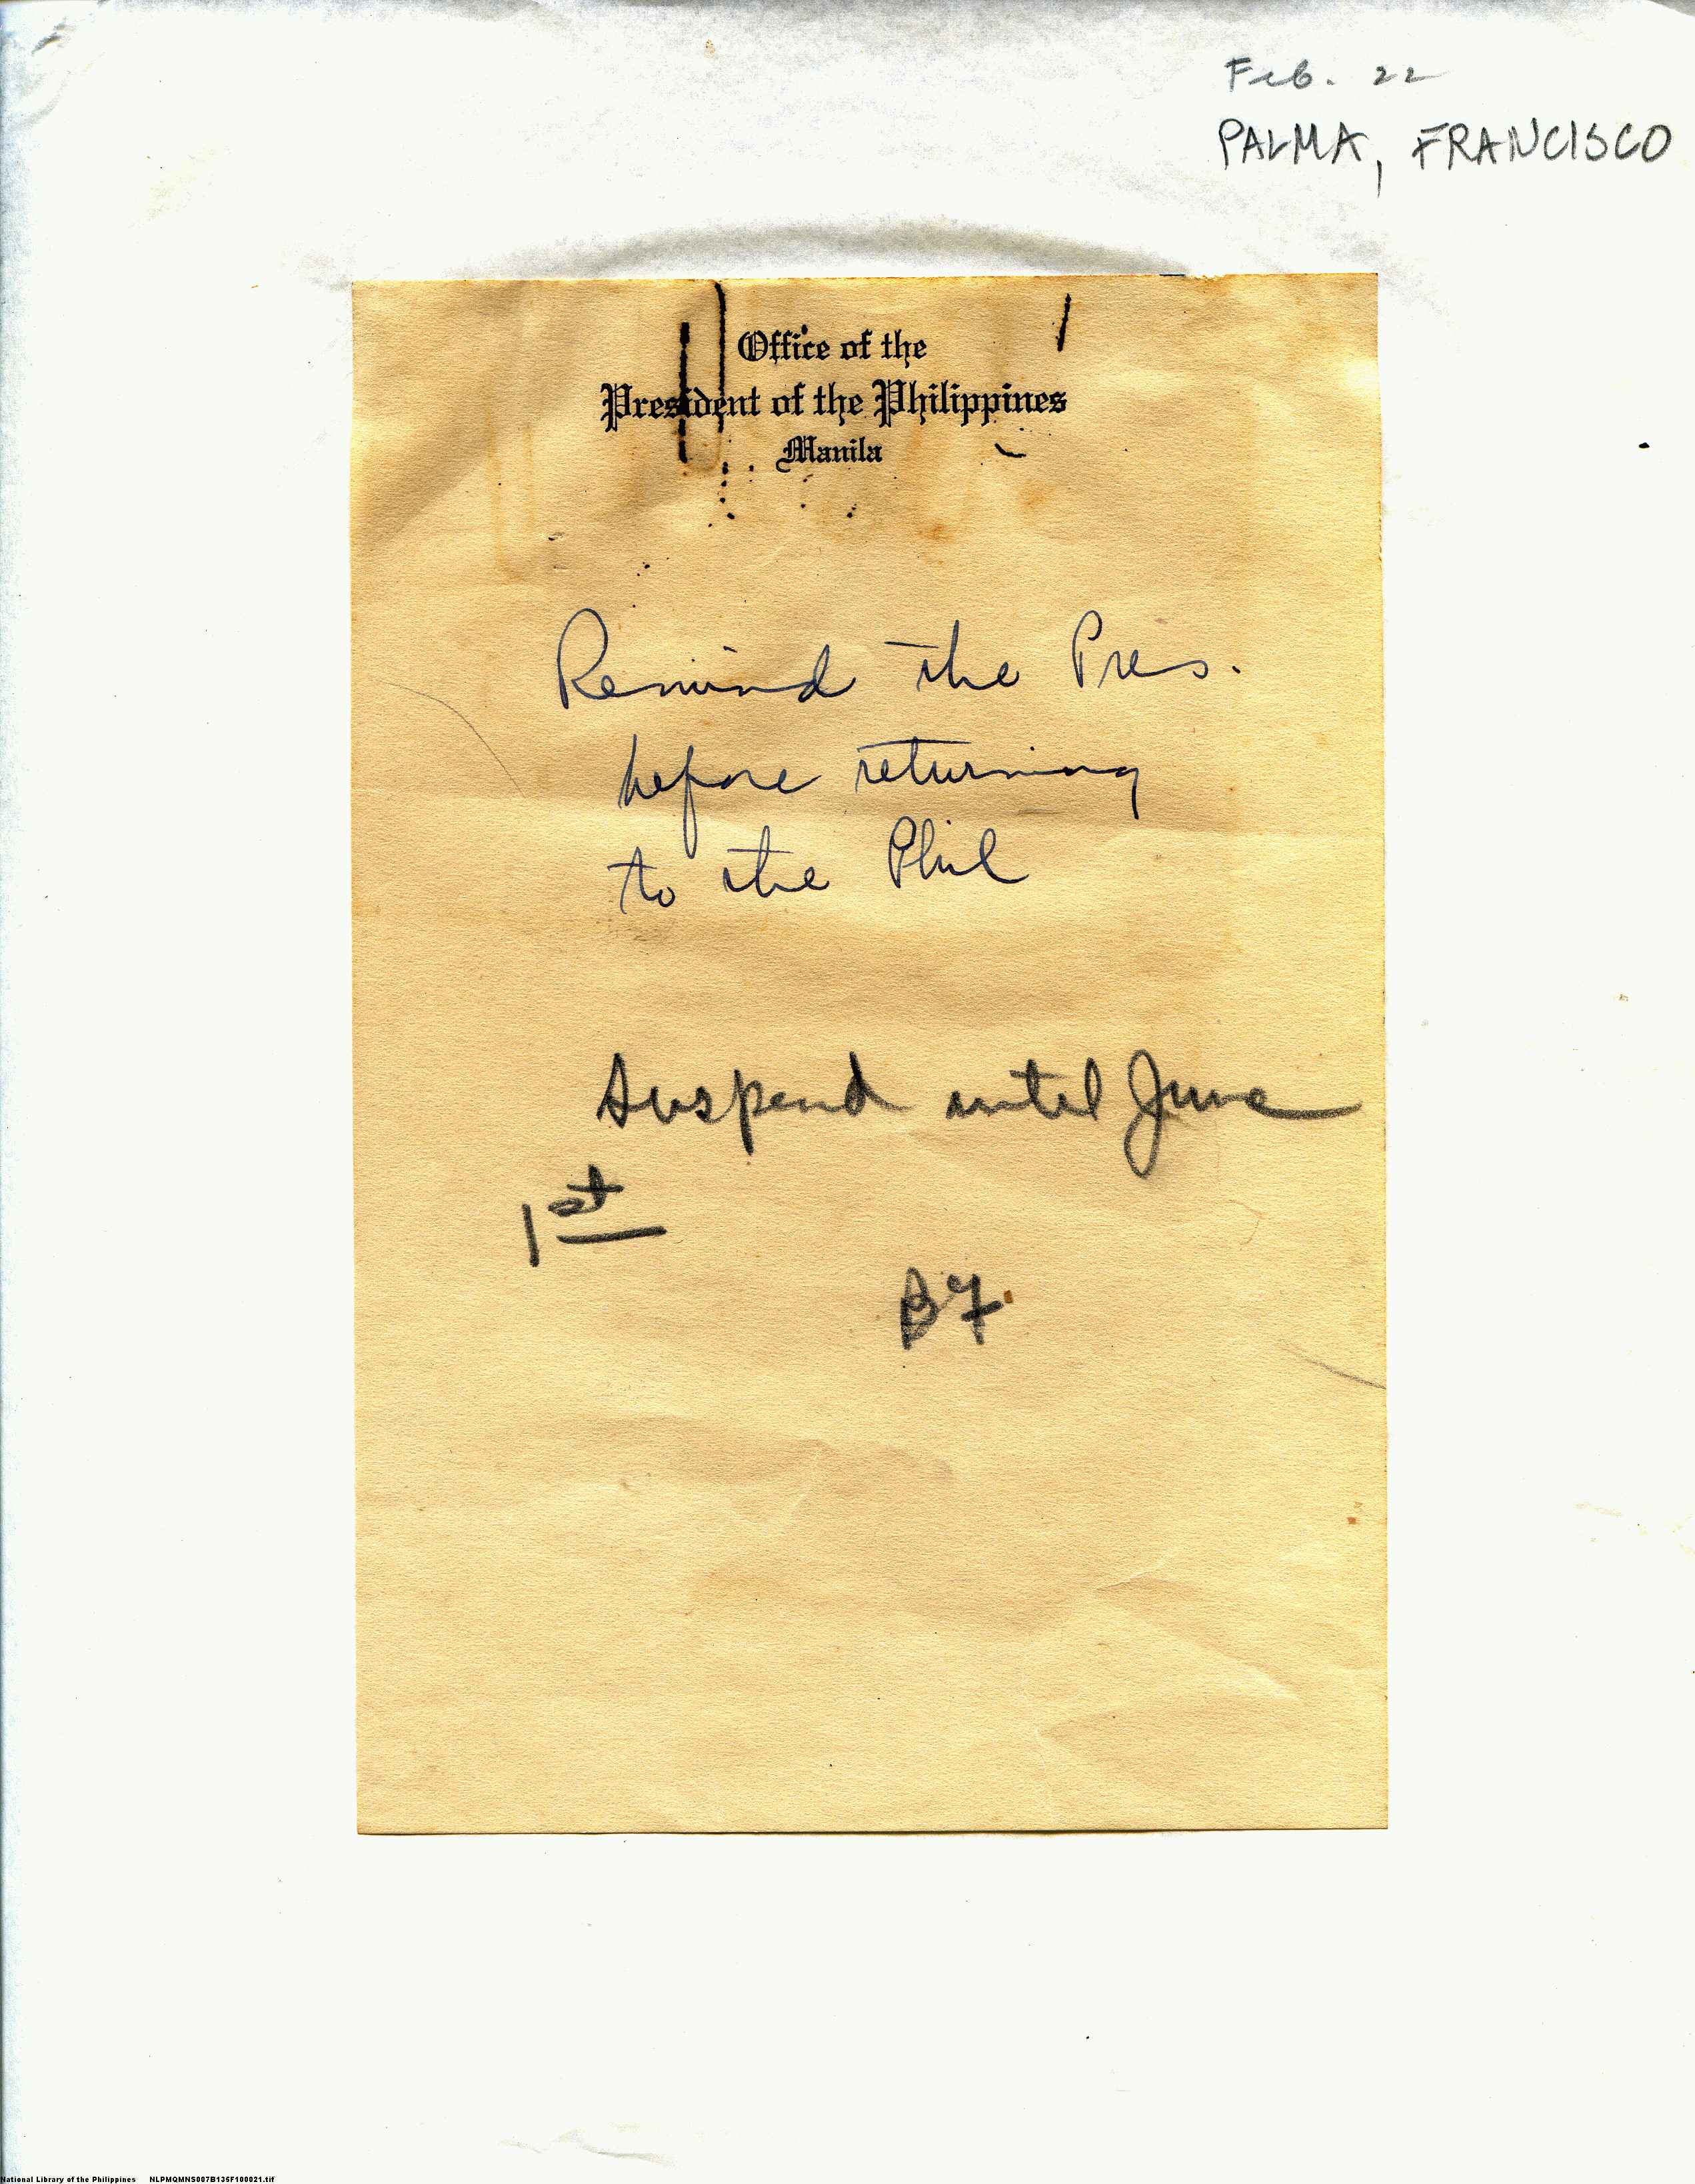 Feb. 22
PALMA, FRANCISCO
Office of the
President of the Philippines
Manila
Remind the Pres.
before returning
to the Phil
Suspend until June
1st
National Library of the Philippines NLPMQMNS007B135F100021.tif